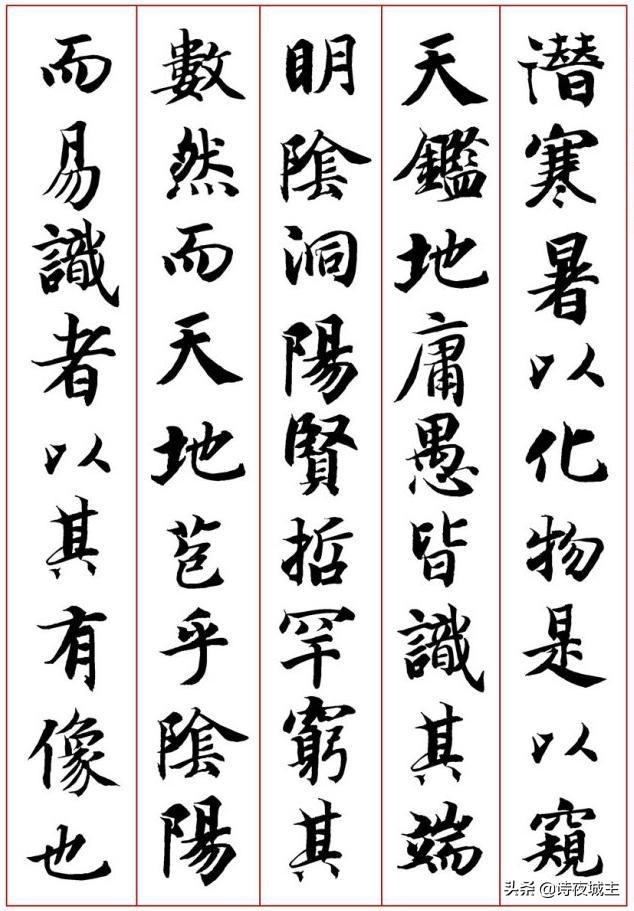 潛寒暑以化物是以窺
天鑑地庸愚皆識其端
明陰洞陽賢哲罕窮其
數然而天地苞乎陰陽
而易識者以其有像也
头条 @诗夜城主